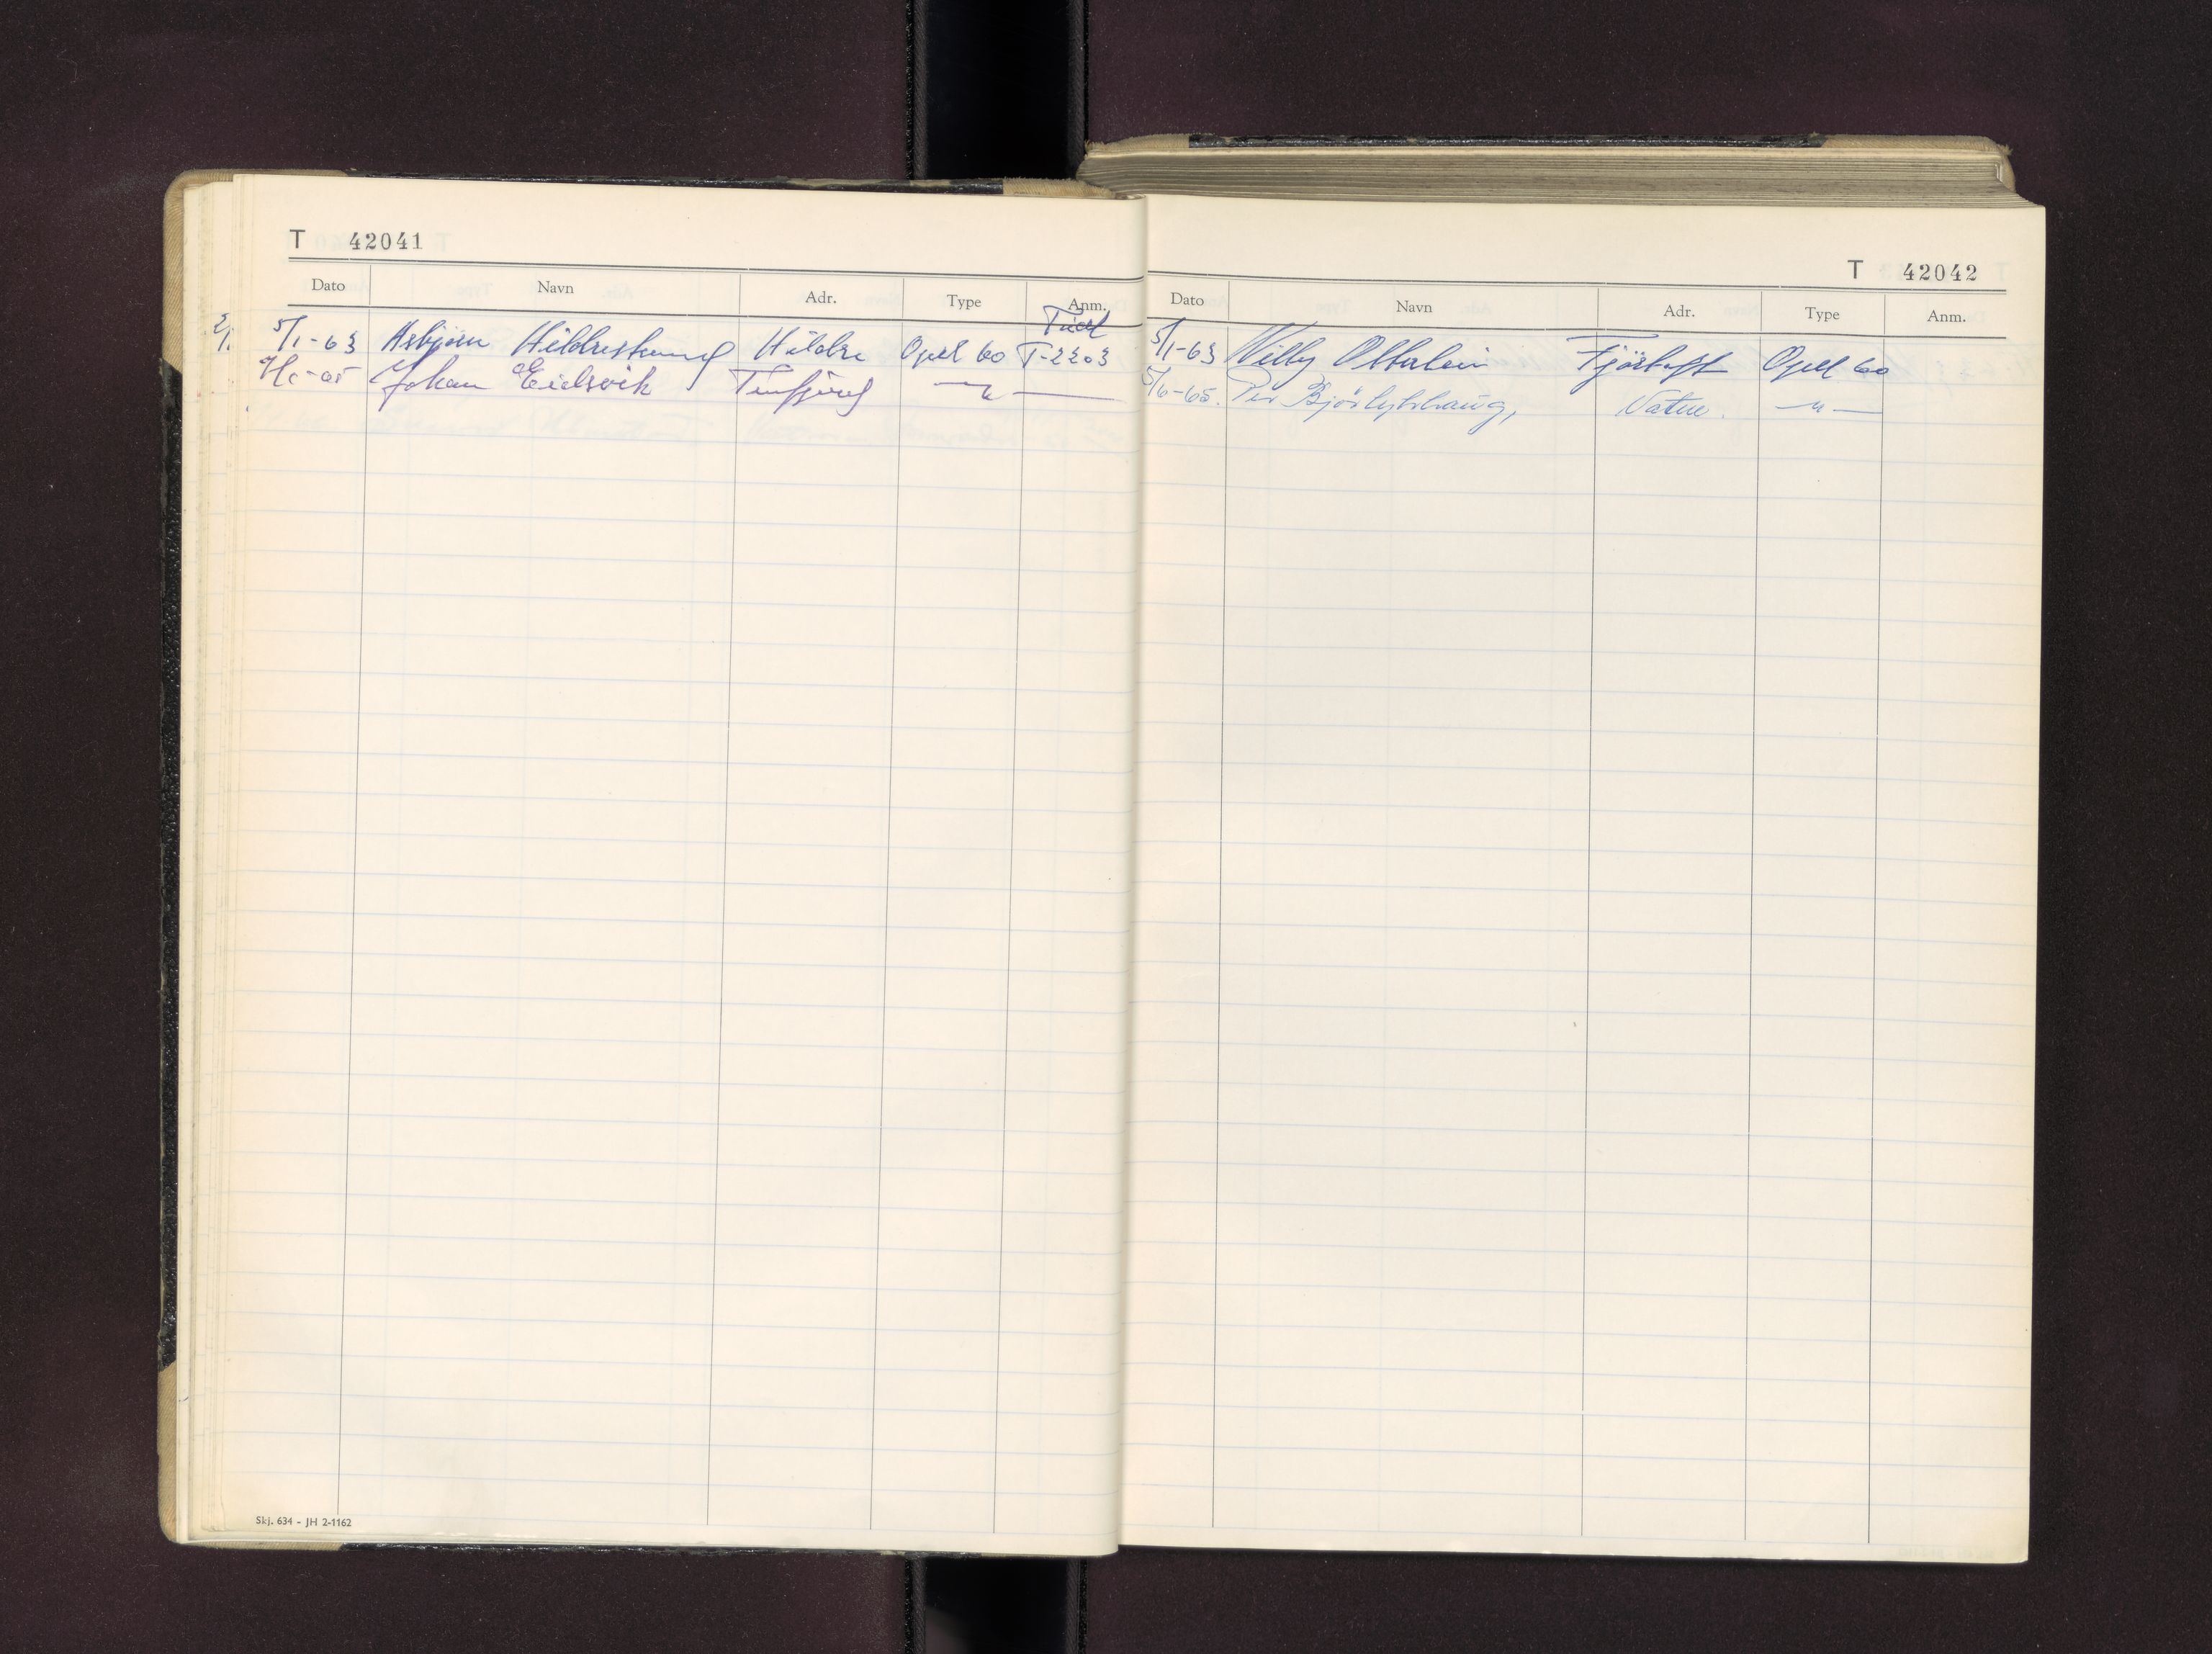 T 42041
Dato Navn Adr. Type Anm.
5/1-63 Asbjørn Hildrestrand Hildre Opel 60 T-2203
Johan Eidsvik Tennfjord — " —
Skj. 634 - JH 2-1162
T 42042
Dato Navn Adr. Type Anm.
5/1-63 Willy Fjørtoft Opel 60
5/6-65. Per Vatne. — " —